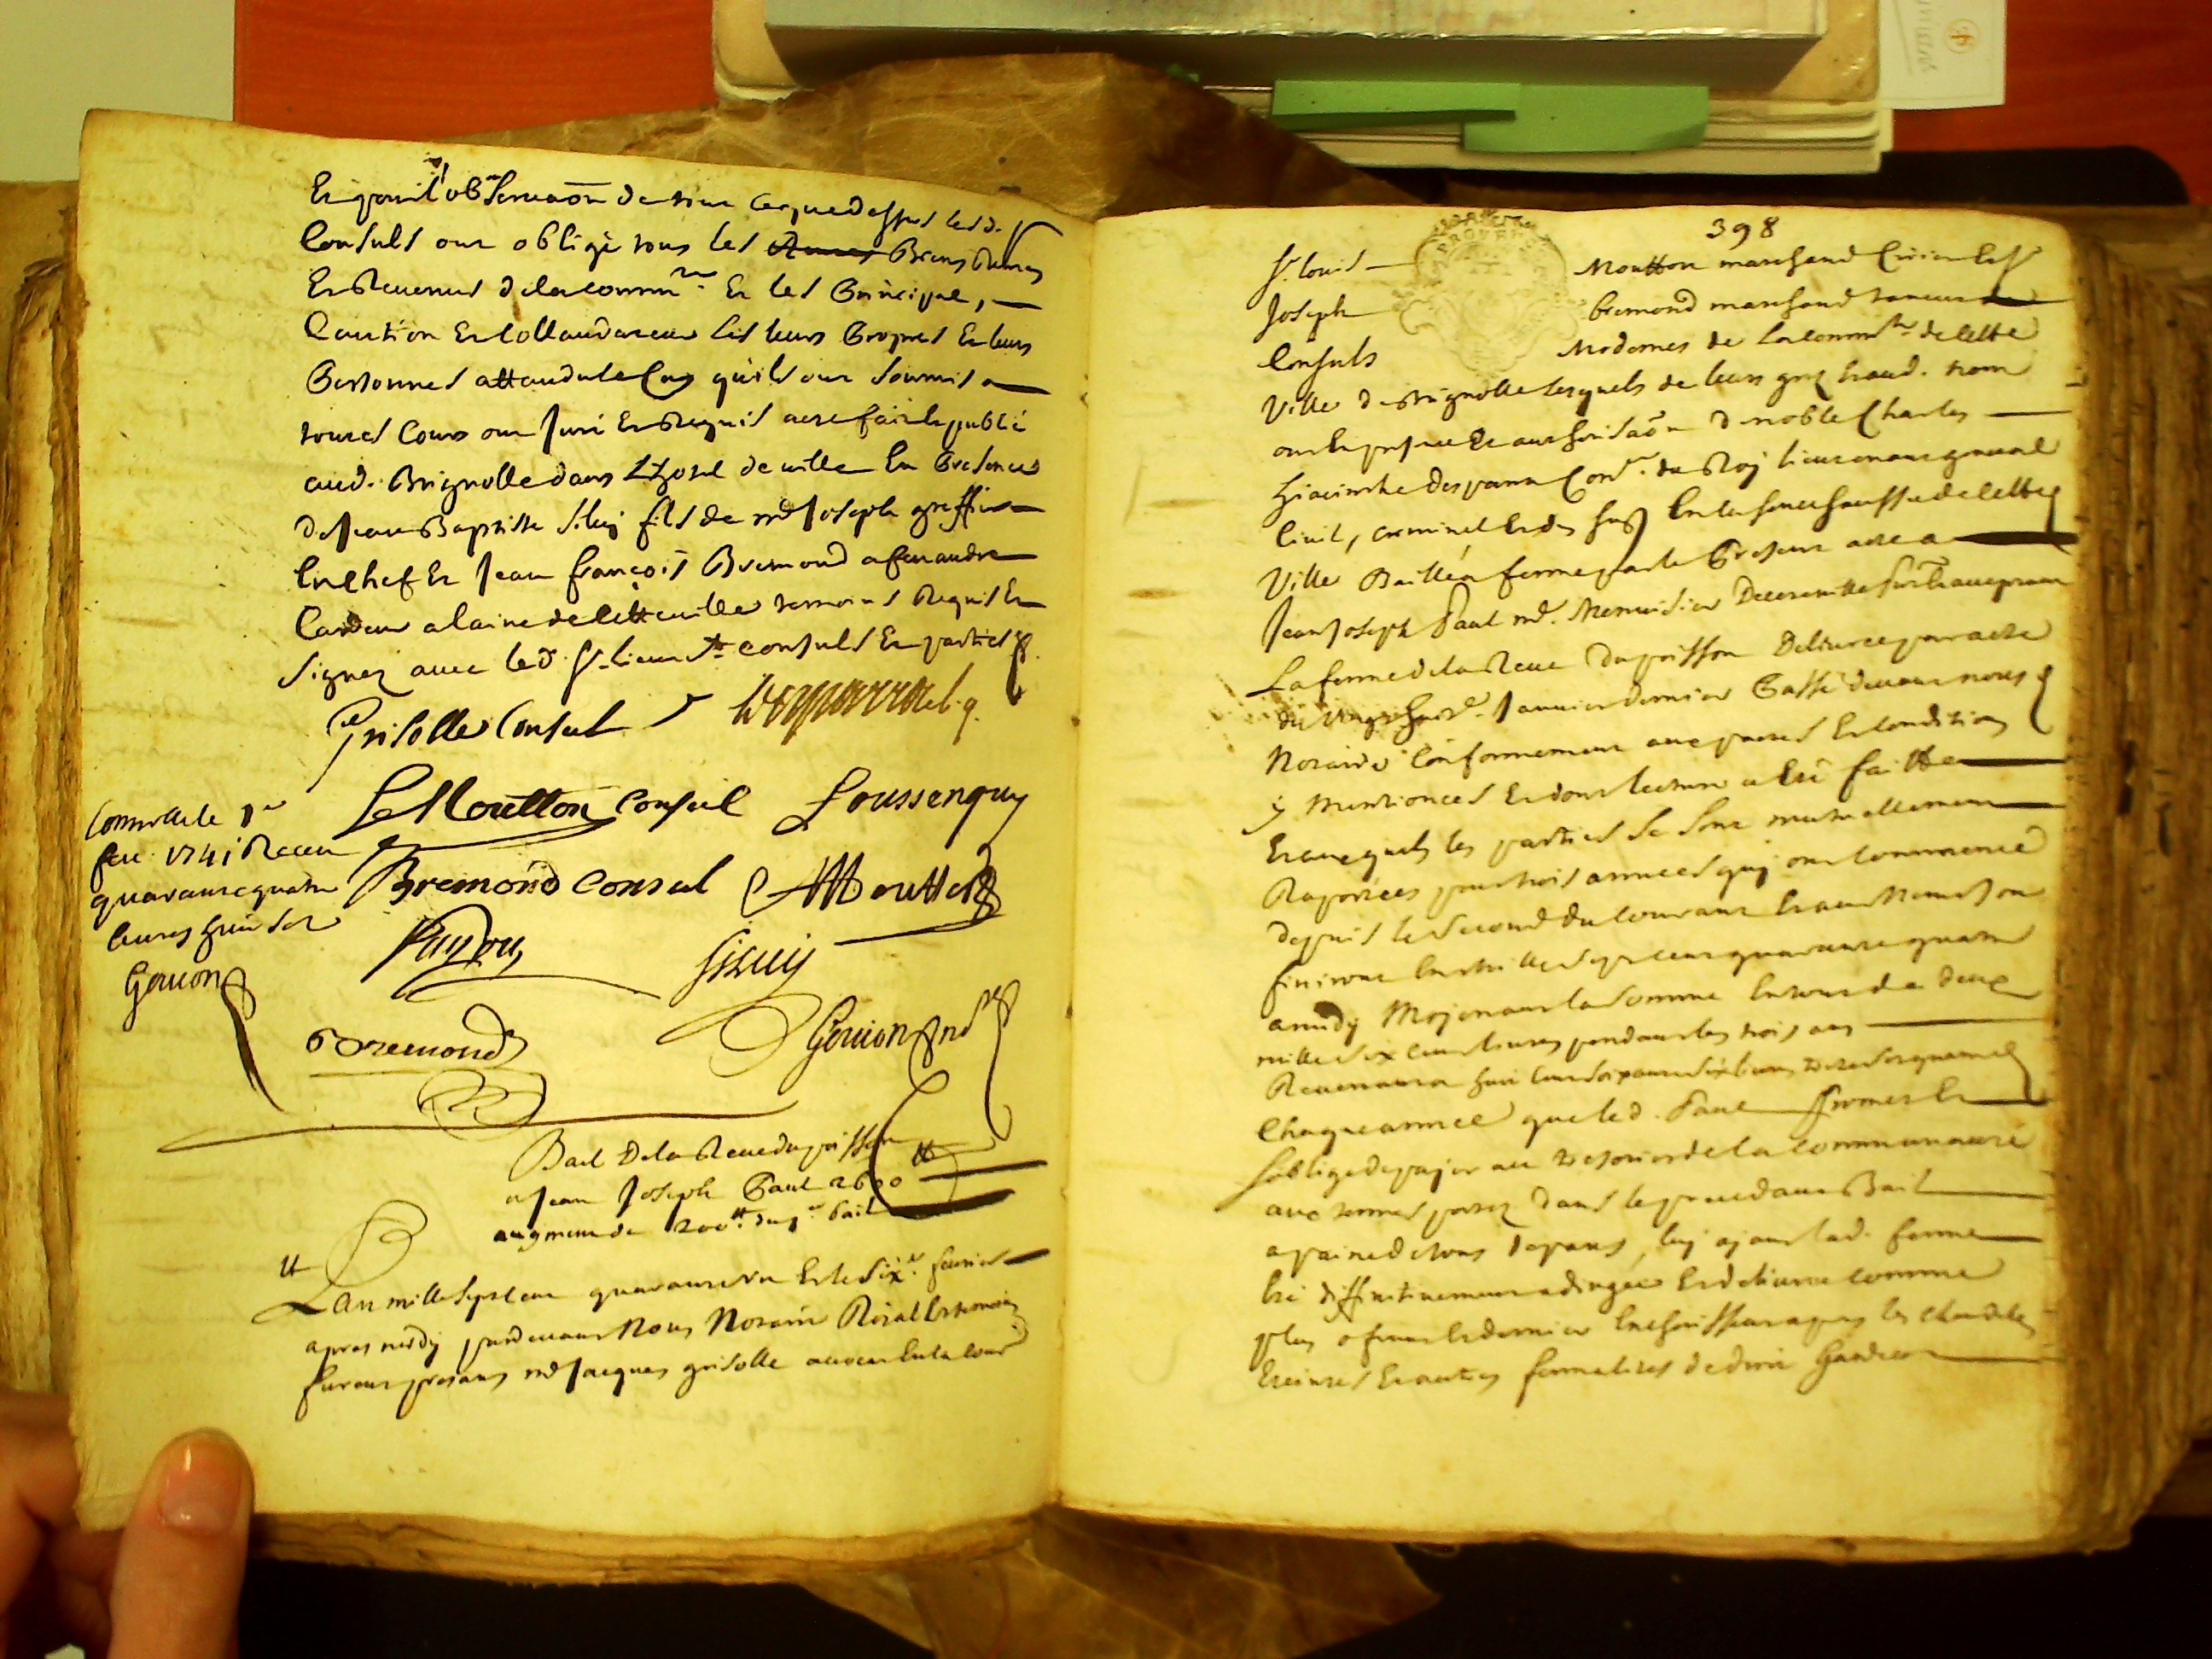 Et pour l'observaon de tout ce que dessus les d. srs
Consuls ont obligé tous les Biens Rentes
Et Revenus de la commté Et les Principal,
Caution Et Collaudateur les leurs Propres Et leurs
Personnes attandu le Cas qu'ils ont soumis a
toutes Cours ont Juré Et Requis acte fait Et publié
aud. Brignolle dans L'hotel de ville En Presence
de Jean Baptiste Siluy fils de me Joseph greffier
En chef Et Jean françois Bremond a feu andre
Cardeur a laine de cette ville temoins Requis Et
Signez avec led. Sr lieut. consuls Et parties
Grisolle Consul
Le Moutton Consul Loussenguy
Bremond Consul Moutton
Siluy
Bremond Goujon nre
Controllé le
feu. 1741 Receu
quarante quatre
livres huit sol
Goujon
Bail De la Reve du poisson
a Jean Joseph Paul 2600 tt
augmente de 200 tt du pnt bail
L'an mille Sept cent quarante un Et le Sixe fevrier
apres midy pardevant Nous Notaire Royal Et temoins
furent presans me Jacques grisolle avocat En la Cour
398
Sr. louis Moutton marchand Cirier Et Sr
Joseph Bremond marchand tanneur
Consuls Modernes de la commté de cette
Ville de Brignolle lesquels de leurs gré En aud. nom
ont En presence Et authorisaon de noble Charles
Hiacinthe desparra Conr. du Roy lieutenant general
Civil, criminel Et des sub En la senechaussée de cette
Ville Baillen a ferme par le Present acte a
Jean Joseph Paul md. Menuisier De cette ville
La ferme de la Reve Du poisson Delivrée par acte
du Vingt huite. Janvier dernier Passé devant nous
Notaire Conformement aux pactes Et Conditions
y Mentionées Et dont lecture a Eté faitte
Et auxquels les parties Se Sont mutuellement
Raportées pour trois années quy ont Commencé
depuis le Second du Courant Et a un Meme Jour
finiront En mille Sept cent quarante quatre
a midy Mojenant la Somme En tout de deux
mille Six Cent livres pendant les trois ans
Revenant a huit Cent Soixante Six livres treze Sols quatre d
Chaque année que led. Paul Promet Et
S'oblige de payer au tresorier de la Communauté
aux termes portez Dans le precedant Bail
a paine de tous depans, luy ajant lad. ferme
Eté diffinitivement adjugée Et delivrée comme
plus offrant Et dernier Encherisseur apres les chandelles
Eteintes Et autres formalites de droit Gardées